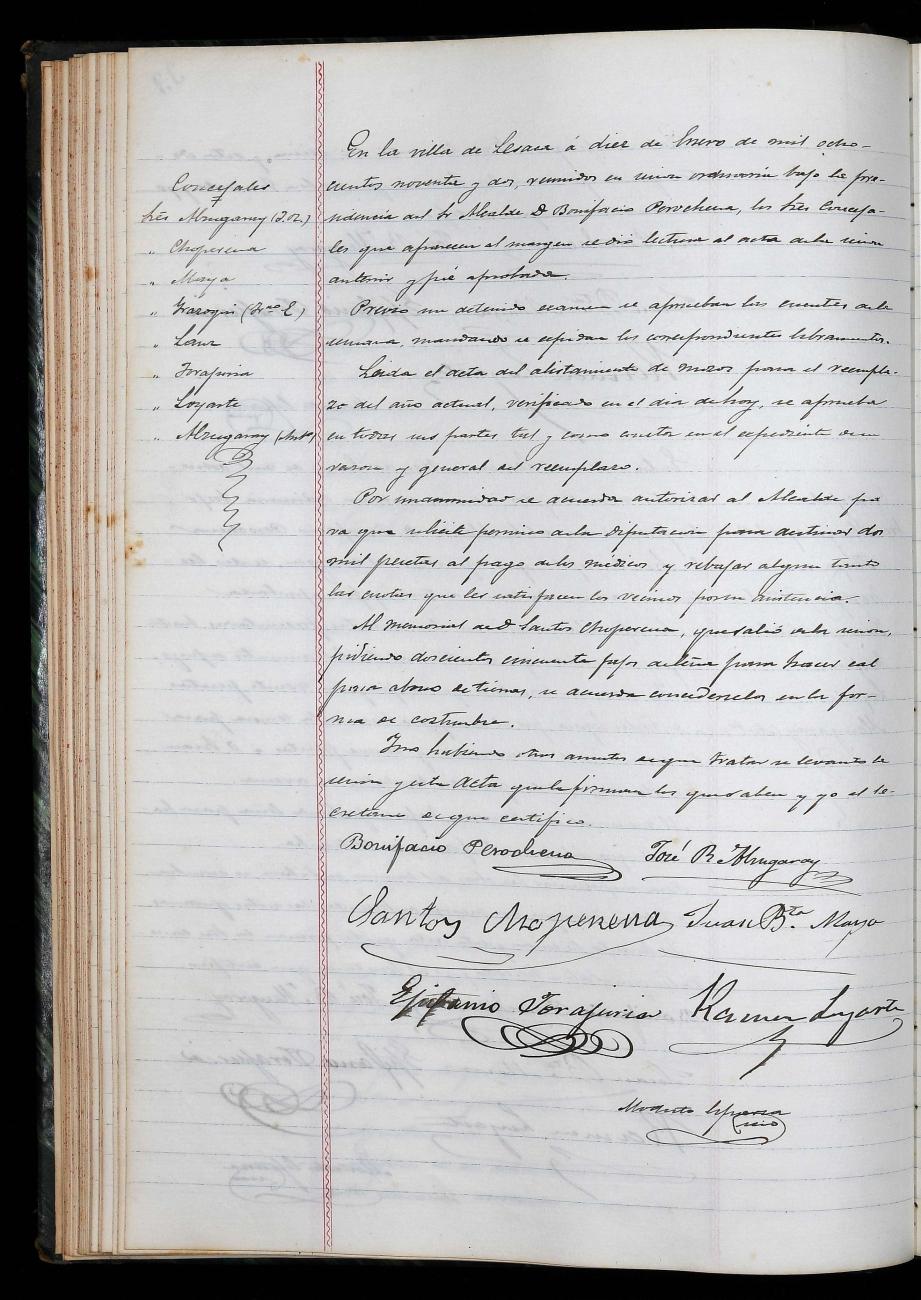 Concejales
Sres Alzugaray (J. R.)
" Choperena
" Maya
" Yrazoqui (Fran.co E)
" Lanz
" Torajuria
" Loyarte
" Alzugaray (Ant.o)
En la villa de Lesaca á diez de Enero de mil ocho-
cientos noventa y dos, reunidos en sesion ordinaria bajo la pre-
sidencia del Sr Alcalde D Bonifacio Perochena, los Sres Conceja-
les que aparecen al margen se dio lectura al acta de la sesion
anterior y fué aprobada.
Previo un detenido examen se aprueban las cuentas de la
semana, mandando se espidan los correspondientes libramientos.
Leida el acta del alistamiento de mozos para el reempla-
zo del año actual, verificado en el dia de hoy, se aprueba
en todas sus partes tal y como consta en el espediente de su
razon y general del reemplazo.
Por unanimidad se acuerda autorizar al Alcalde pa
ra que solicite permiso de la Diputacion para destinar dos
mil pesetas al pago de los medicos y rebajar algun tanto
las cuotas que les satisfacen los vecinos por su asistencia.
Al memorial de D Santos Choperena, que salió de la sesion,
pidiendo doscientas cincuenta fajos de leña para hacer cal
para abono de tierras, se acuerda concederselos en la for-
ma de costumbre.
Y no habiendo otros asuntos de que tratar se levantó la
sesion y esta Acta que la firman los que saben y yo el Se-
cretario de que certifico.
Bonifacio Perochena José R. Alzugaray
Santos Choperena Juan B.ta Maya
Epifanio Torajuria Ramon Loyarte
Modesto
Srio